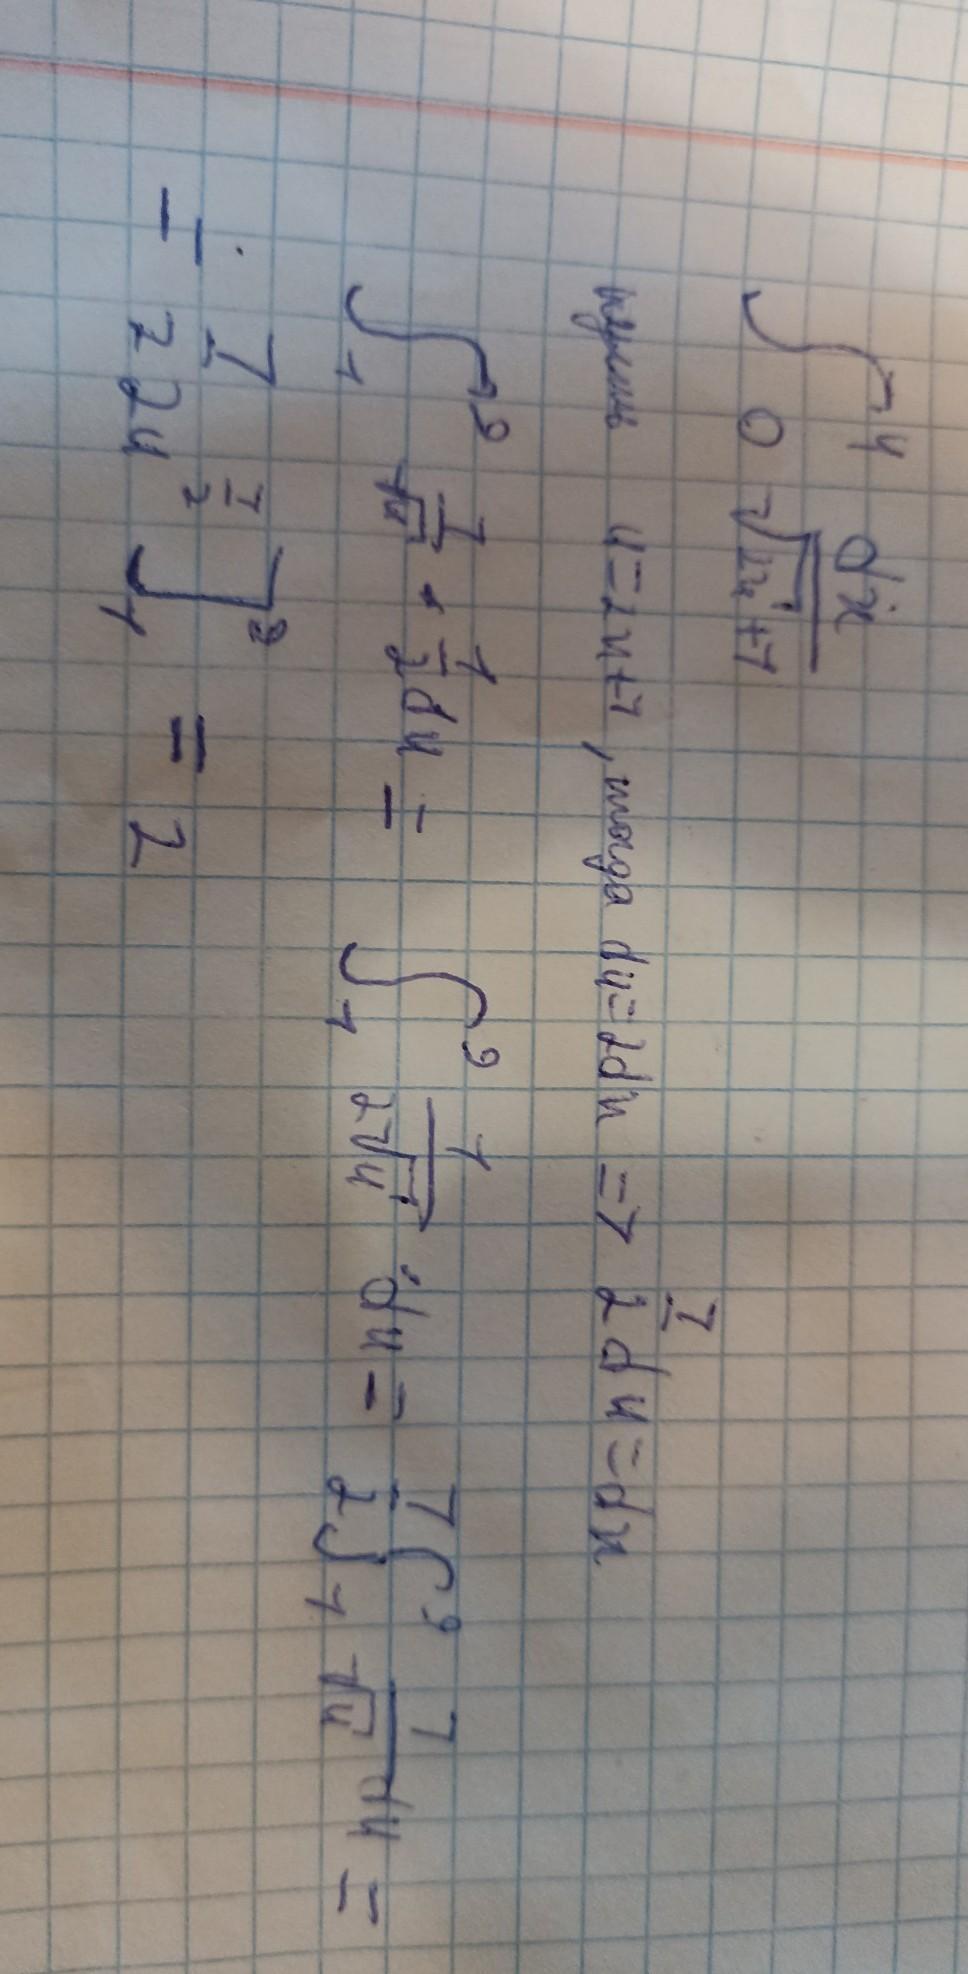 ∫₀⁴ dx/√(2x+1)
пусть u=2x+1, тогда du=2dx => 1/2 du=dx
∫₁⁹ 1/√u · 1/2 du = ∫₁⁹ 1/(2√u) du = 1/2 ∫₁⁹ 1/√u du =
= 1/2 2u^(1/2) ]₁⁹ = 2